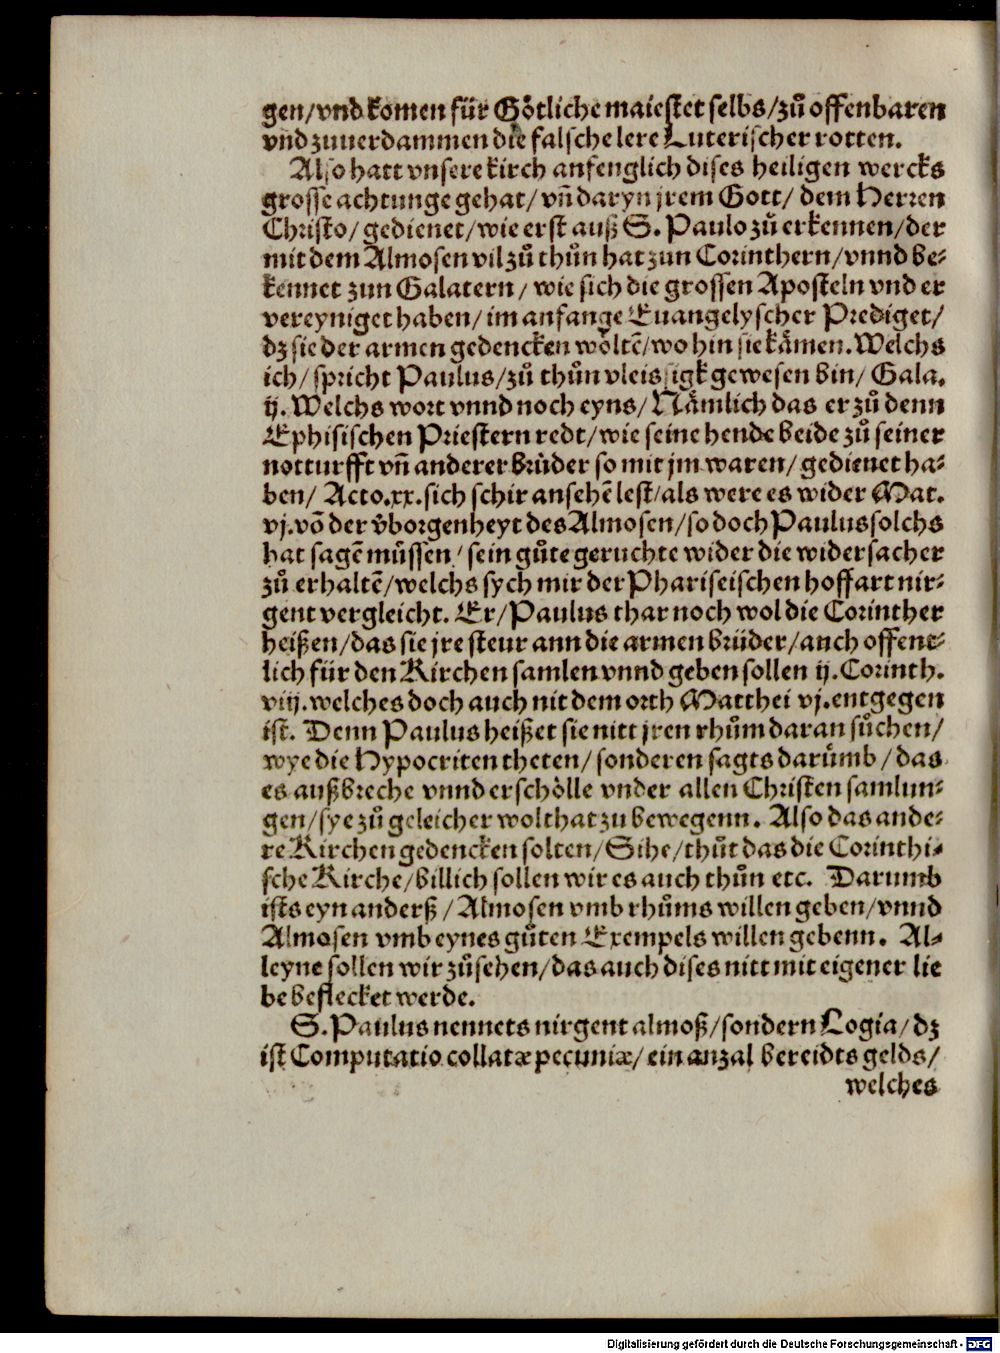 gen/vnd komen für Götliche maiestet selbs/zů offenbaren
vnd zuuerdammen die falsche lere Luterischer rotten.
Also hatt vnsere kirch anfenglich dises heiligen wercks
grosse achtunge gehat/vñ daryn jrem Gott/ dem Herren
Christo/ gedienet/wie erst auß S. Paulo zů erkennen/der
mit dem Almosen vil zů thůn hat zun Corinthern/vnnd be-
kennet zun Galatern/ wie sich die grossen Aposteln vnd er
vereyniget haben/ im anfange Euangelyscher Prediget/
dz sie der armen gedencken wöltẽ/wo hin sie kämen. Welchs
ich/ spricht Paulus/zů thůn vleissigk gewesen bin/ Gala.
ij. Welchs wort vnnd noch eyns/ Nämlich das er zů denn
Ephisischen Priestern redt/wie seine hende beide zů seiner
notturfft vñ anderer brüder so mit jm waren/gedienet ha-
ben/ Acto.xx.sich schir ansehẽ lest/als were es wider Mat.
vj.võ der v̊borgenheyt des Almosen/so doch Paulus solchs
hat sagẽ müssen/ sein gůte geruchte wider die widersacher
zů erhaltẽ/welchs sych mir der Phariseischen hoffart nir-
gent vergleicht. Er/Paulus thar noch wol die Corinther
heißen/das sie jre steur ann die armen brüder/auch offent-
lich für den Kirchen samlen vnnd geben sollen ij. Corinth.
viij. welches doch auch nit dem orth Matthei vj.entgegen
ist. Denn Paulus heißet sie nitt jren rhům daran sůchen/
wye die Hypocriten theten/ sonderen sagts darůmb/das
es außbreche vnnd erschölle vnder allen Christen samlun-
gen/sye zů geleicher wolthat zu bewegenn. Also das ande-
re Kirchen gedencken solten/Sihe/thůt das die Corinthi-
sche Kirche/billich sollen wir es auch thůn etc. Darumb
ists eyn anderß/Almosen vmb rhůms willen geben/vnnd
Almosen vmb eynes gůten Exempels willen gebenn. Al-
leyne sollen wir zůsehen/das auch dises nitt mit eigener lie
be beflecket werde.
S. Paulus nennets nirgent almoß/sondern Logia/dz
ist Computatio collatæ pecuniæ/ein anzal bereidts gelds/
welches
Digitalisierung gefördert durch die Deutsche Forschungsgemeinschaft - DFG